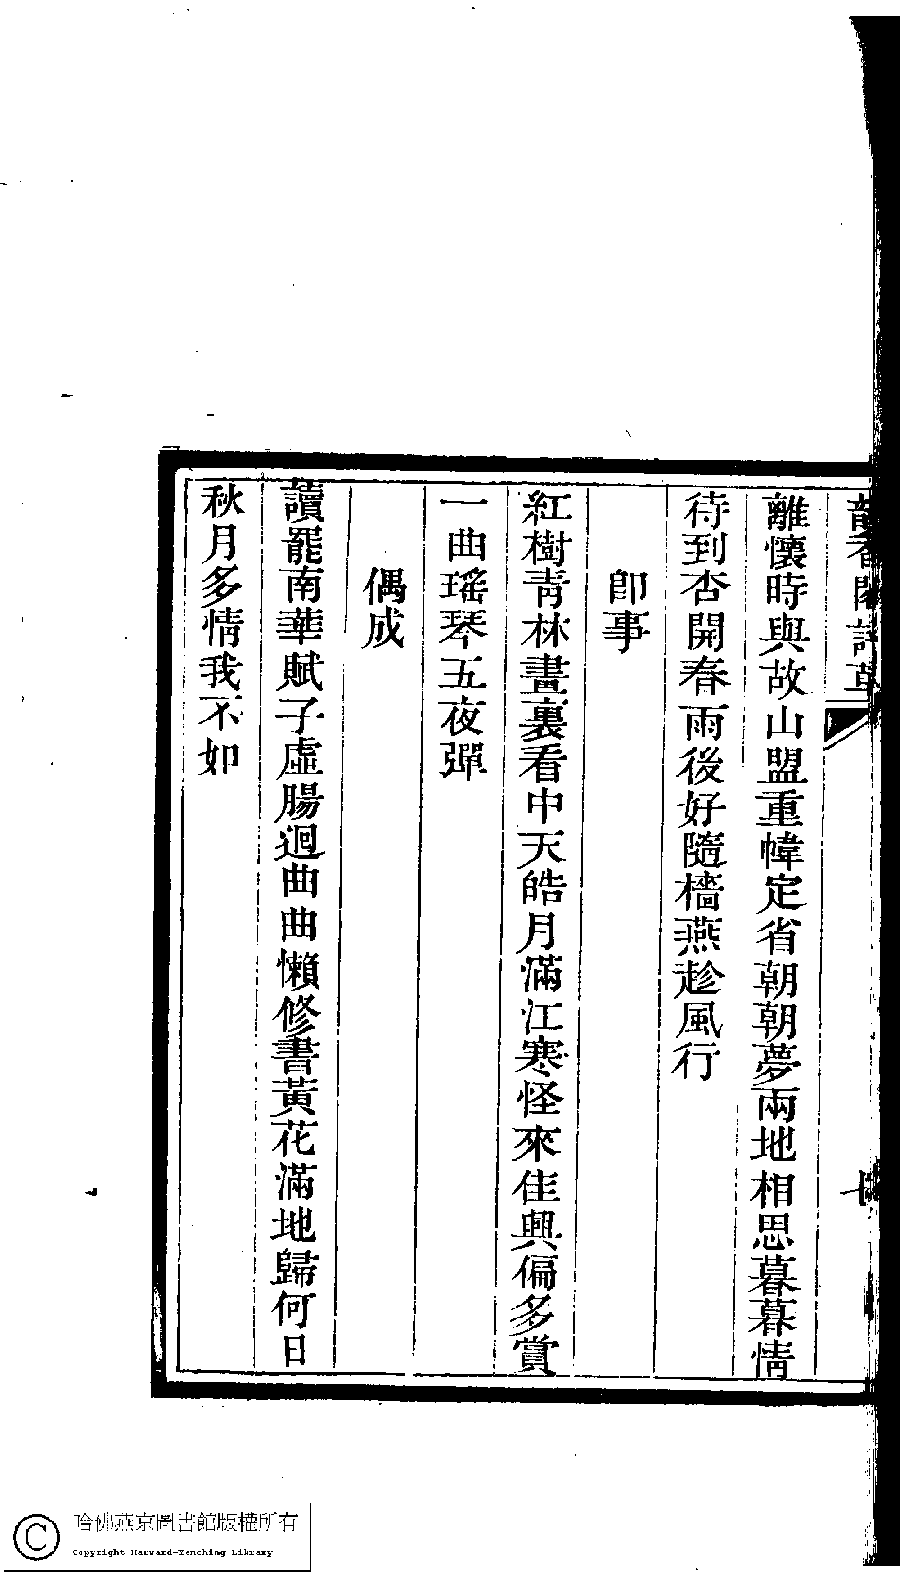 韻香閣詩草
離懷時與故山盟重幃定省朝朝夢兩地相思暮暮情
待到杏開春雨後好隨檣燕趁風行
即事
紅樹靑林畫裏看中天皓月滿江寒怪來佳興偏多賞
一曲瑤琴五夜彈
偶成
讀罷南華賦子虛腸迴曲曲懶修書黃花滿地歸何日
秋月多情我不如
哈佛燕京圖書館版權所有
Copyright Harvard-Yenching Library